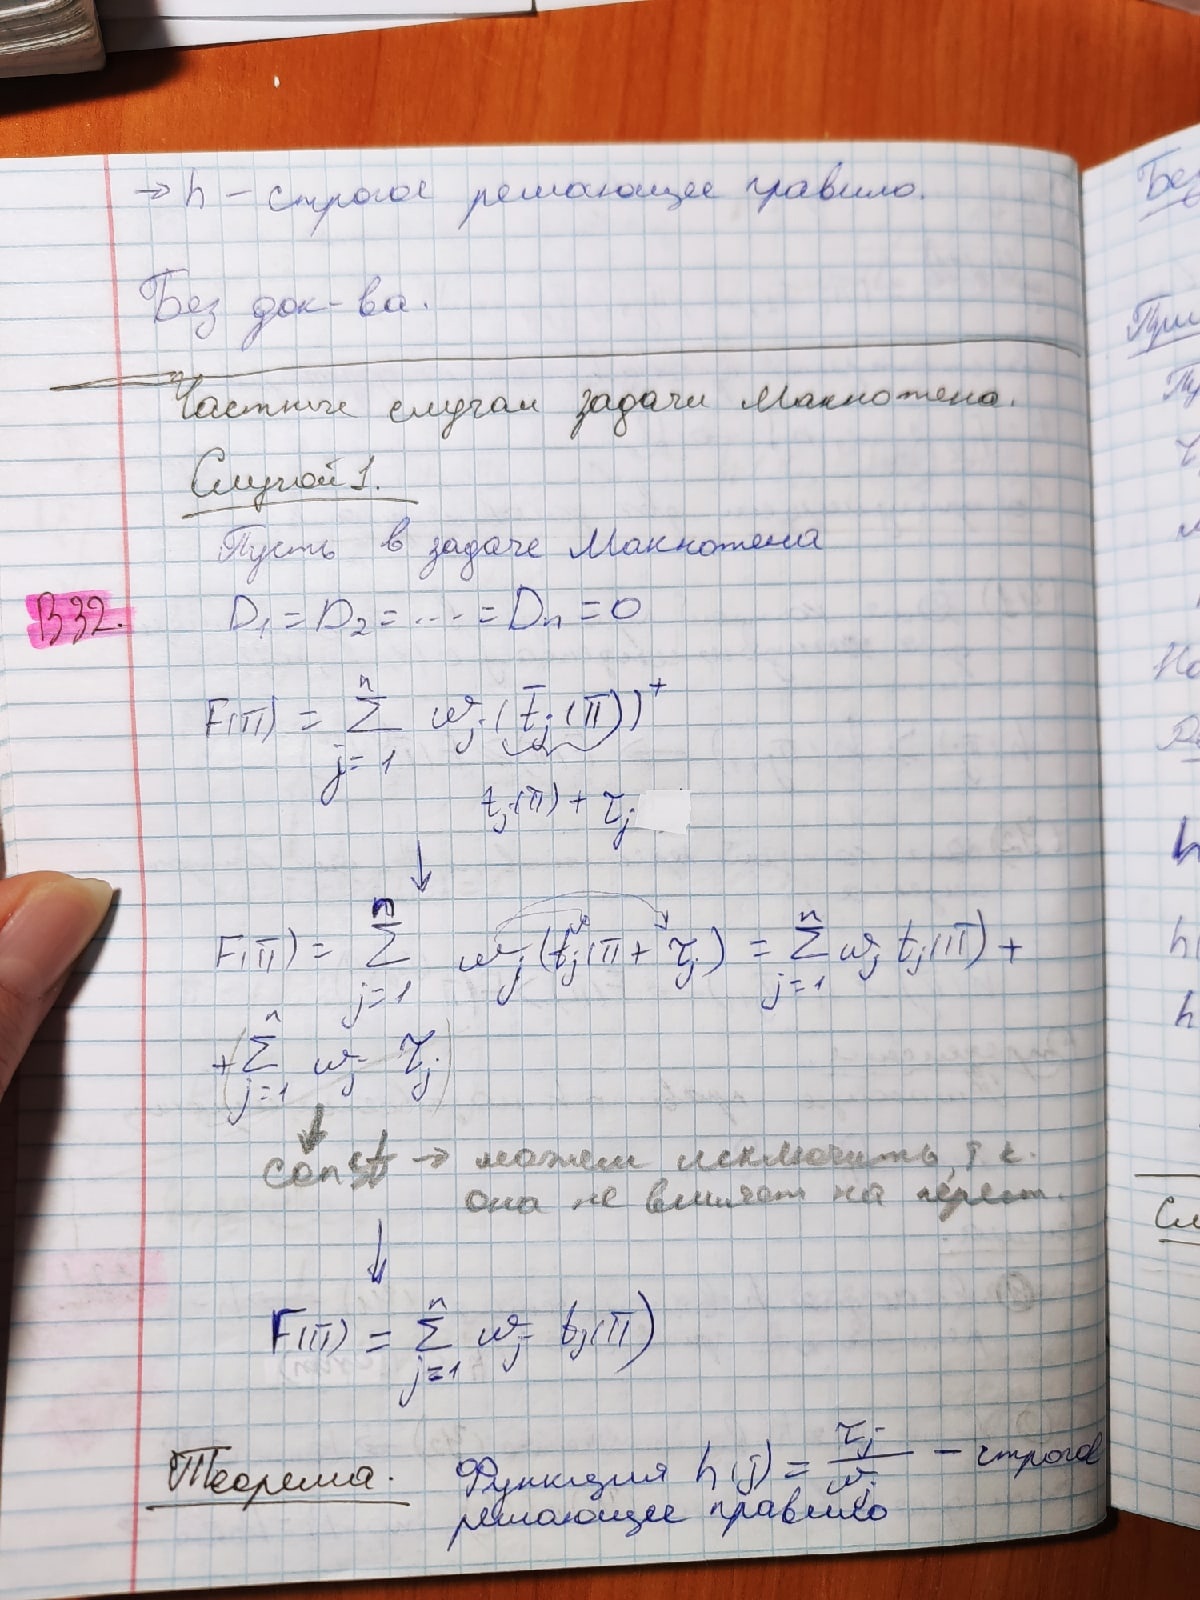 → h – строгое решающее правило.
Без док-ва.
Частные случаи задачи Макнотена.
Случай 1.
Пусть в задаче Макнотена
В32.
D₁ = D₂ = ... = Dₙ = 0
F(π) = ∑ⁿⱼ₌₁ wⱼ (t̄ⱼ(π))⁺
tⱼ(π) + τⱼ
↓
F(π) = ∑ⁿⱼ₌₁ wⱼ (tⱼ(π + τⱼ) = ∑ⁿⱼ₌₁ wⱼ tⱼ(π) +
+ (∑ⁿⱼ₌₁ wⱼ τⱼ)
↓
const → можем исключить, т.к.
она не влияет на перест.
↓
F(π) = ∑ⁿⱼ₌₁ wⱼ tⱼ(π)
Теорема. Функция h(j) = τⱼ/wⱼ – строгое
решающее правило